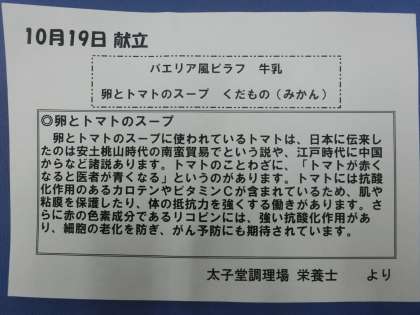 10月19日 献立
バエリア風ピラフ　牛乳
卵とトマトのスープ　くだもの（みかん）
◎卵とトマトのスープ
　卵とトマトのスープに使われているトマトは、日本に伝来し
たのは安土桃山時代の南蛮貿易でという説や、江戸時代に中国
からなど諸説あります。トマトのことわざに、「トマトが赤く
なると医者が青くなる」というのがあります。トマトには抗酸
化作用のあるカロテンやビタミンCが含まれているため、肌や
粘膜を保護したり、体の抵抗力を強くする働きがあります。さ
らに赤の色素成分であるリコピンには、強い抗酸化作用があ
り、細胞の老化を防ぎ、がん予防にも期待されています。
太子堂調理場　栄養士　　より